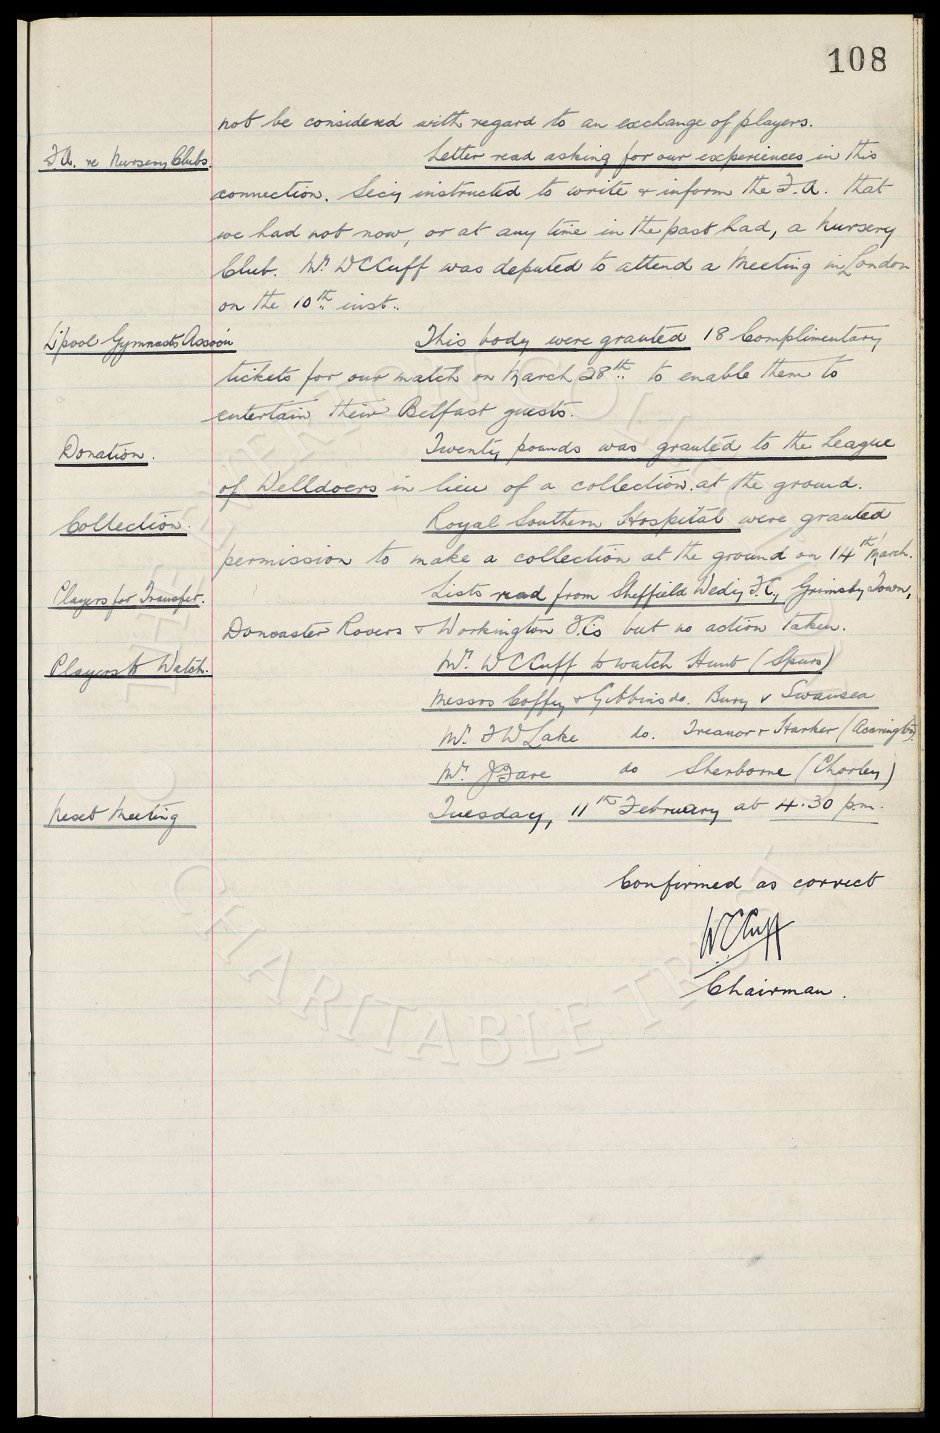 108
not be considered with regard to an exchange of players.
F.A. re Nursery Clubs. Letter read asking for our experiences in this
connection. Secy instructed to write & inform the F.A. that
we had not now, or at any time in the past had, a Nursery
Club. Mr. W C Cuff was deputed to attend a Meeting in London
on the 10th inst.
L'pool Gymnasts Assocn This body were granted 18 Complimentary
tickets for our match on March 28th to enable them to
entertain their Belfast guests.
Donation. Twenty pounds was granted to the League
of Welldoers in lieu of a collection at the ground.
Collection. Royal Southern Hospital were granted
permission to make a collection at the ground on 14th March.
Players for Transfer. Lists read from Sheffield Wedy F.C., Grimsby Town,
Doncaster Rovers & Workington F.Cs but no action taken.
Players to Watch. Mr. W C Cuff to watch Hunt (Spurs)
Messrs Coffey & Gibbins do. Bury v Swansea
Mr. F W Lake do. Treanor & Harker (Accrington).
Mr. J Fare do Sherborne (Chorley)
Next Meeting Tuesday, 11th February at 4.30 pm.
Confirmed as correct
W C Cuff
Chairman.
THE EVERTON COLLECTION
CHARITABLE TRUST